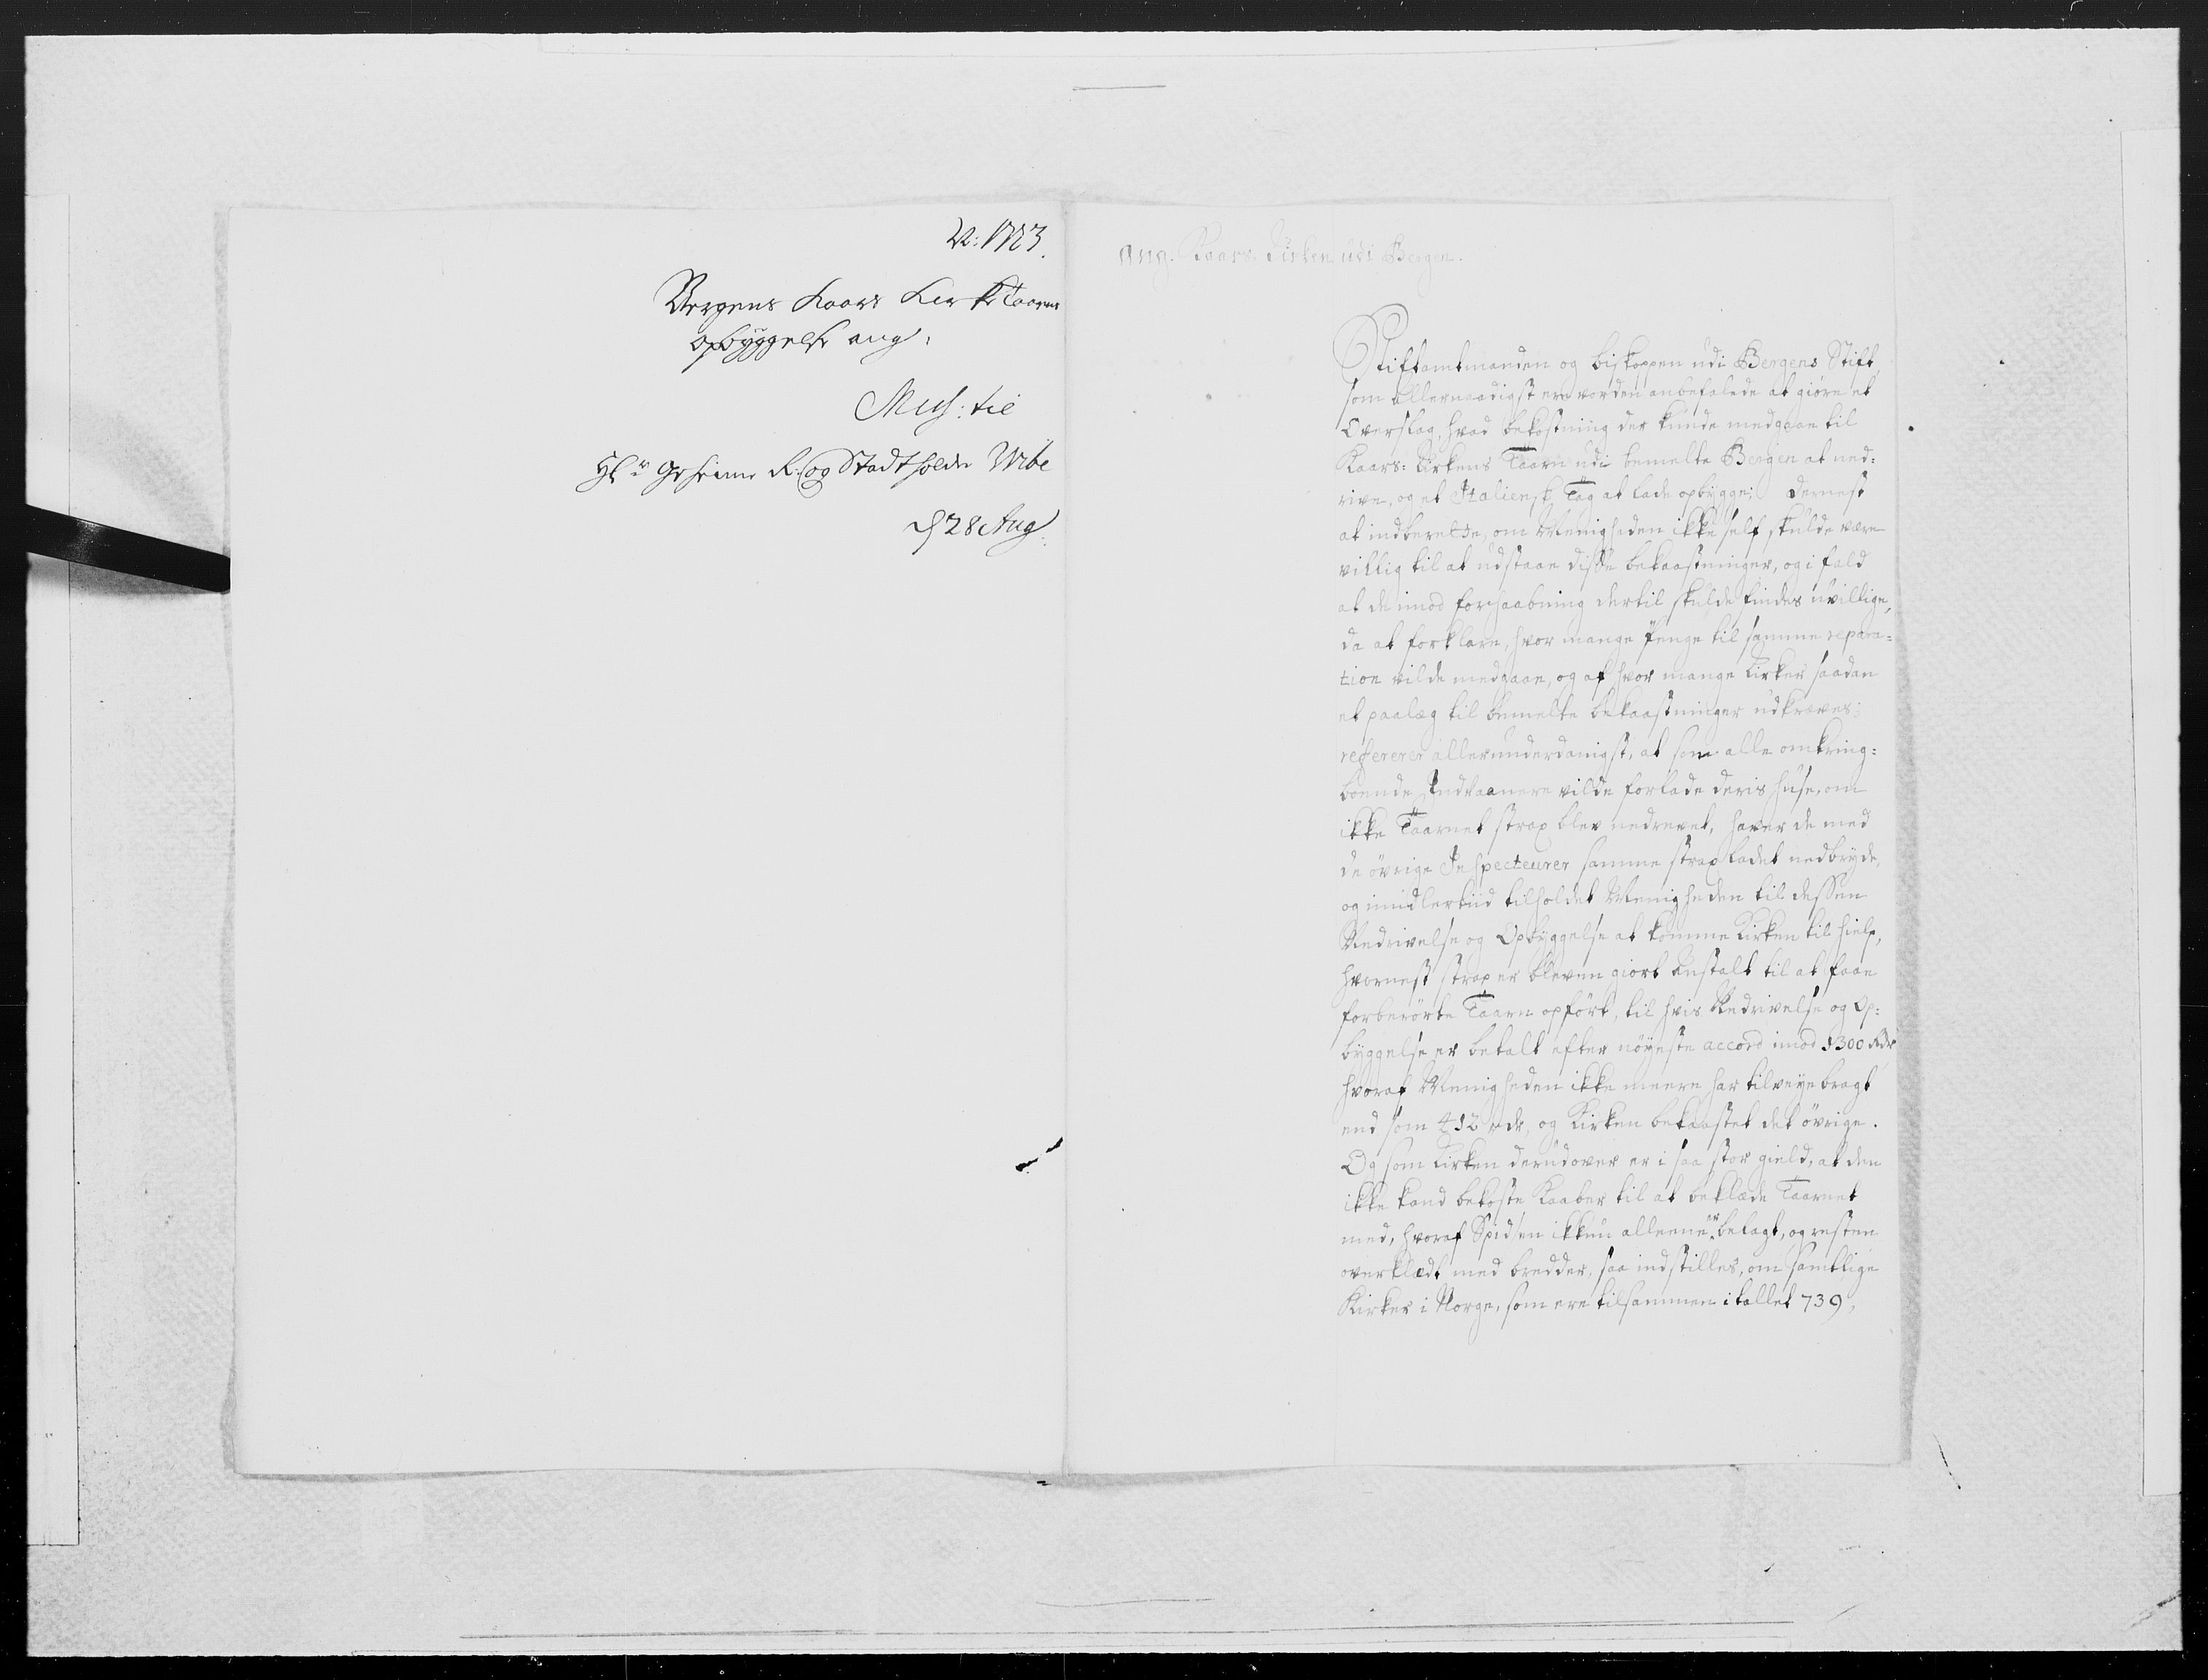 1723.
Bergens Kaars Kirke Taarns
opbyggelse ang.
Miss: til
Hr Geheime R: og Stadtholder Wibe
d 28 Aug.
ang. Kaars Kirken udi Bergen.
Stiftamtmanden og biskoppen udi Bergens Stift,
som allernaadigst ere vorden anbefalede at giøre et
Overslag, hvad bekostning der kunde medgaae til
Kaars-Kirkens Taarn udi bemelte Bergen at ned-
rive, og et Italiensk Tag at lade opbygge; dernest
at indberette, om Menigheden ikke self skulde være
villig til at udstaae disse bekaastninger, og i fald
at de imod forhaabning dertil skulde findes uvillige,
da at forklare, hvor mange Penge til samme repara-
tion vilde medgaae, og af hvor mange Kirker saadan
et paalæg til bemelte bekaastninger udkræves;
refererer allerunderdanigst, at som alle omkring-
boende Indvaanere vilde forlade deris huse, om
ikke Taarnet strax blev nedrevet, haver de med
de øvrige Inspecteurer samme strax ladet nedbryde,
og imidlertiid tilholdet Menigheden til dessen
Nedrivelse og Opbyggelse at komme Kirken til hielp,
hvornest strax er bleven giort Anstalt til at faae
forberørte Taarn opført, til hvis Nedrivelse og Op-
byggelse er betalt efter nøyeste accord imod 1300 Rdr
hvoraf Menigheden ikke meere har tilveyebragt
end som 412 rdr, og Kirken bekaastet det øvrige.
Og som Kirken derudover er i saa stor gield, at den
ikke kand bekoste Kaaber til at beklæde Taarnet
med, hvoraf Spidsen ikkun alleene er belagt, og resten
overklædt med bredder, saa indstilles, om samtlige
Kirker i Norge, som ere tilsammen i tallet 739,